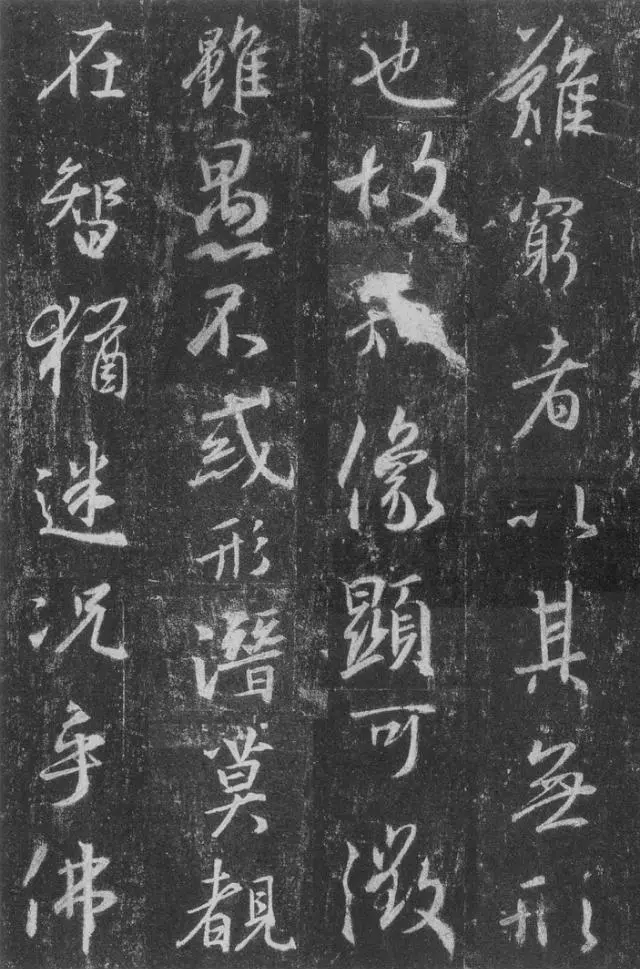 難窮者以其無形
也故像顯可徵
雖愚不惑形潛莫覩
在智猶迷况乎佛